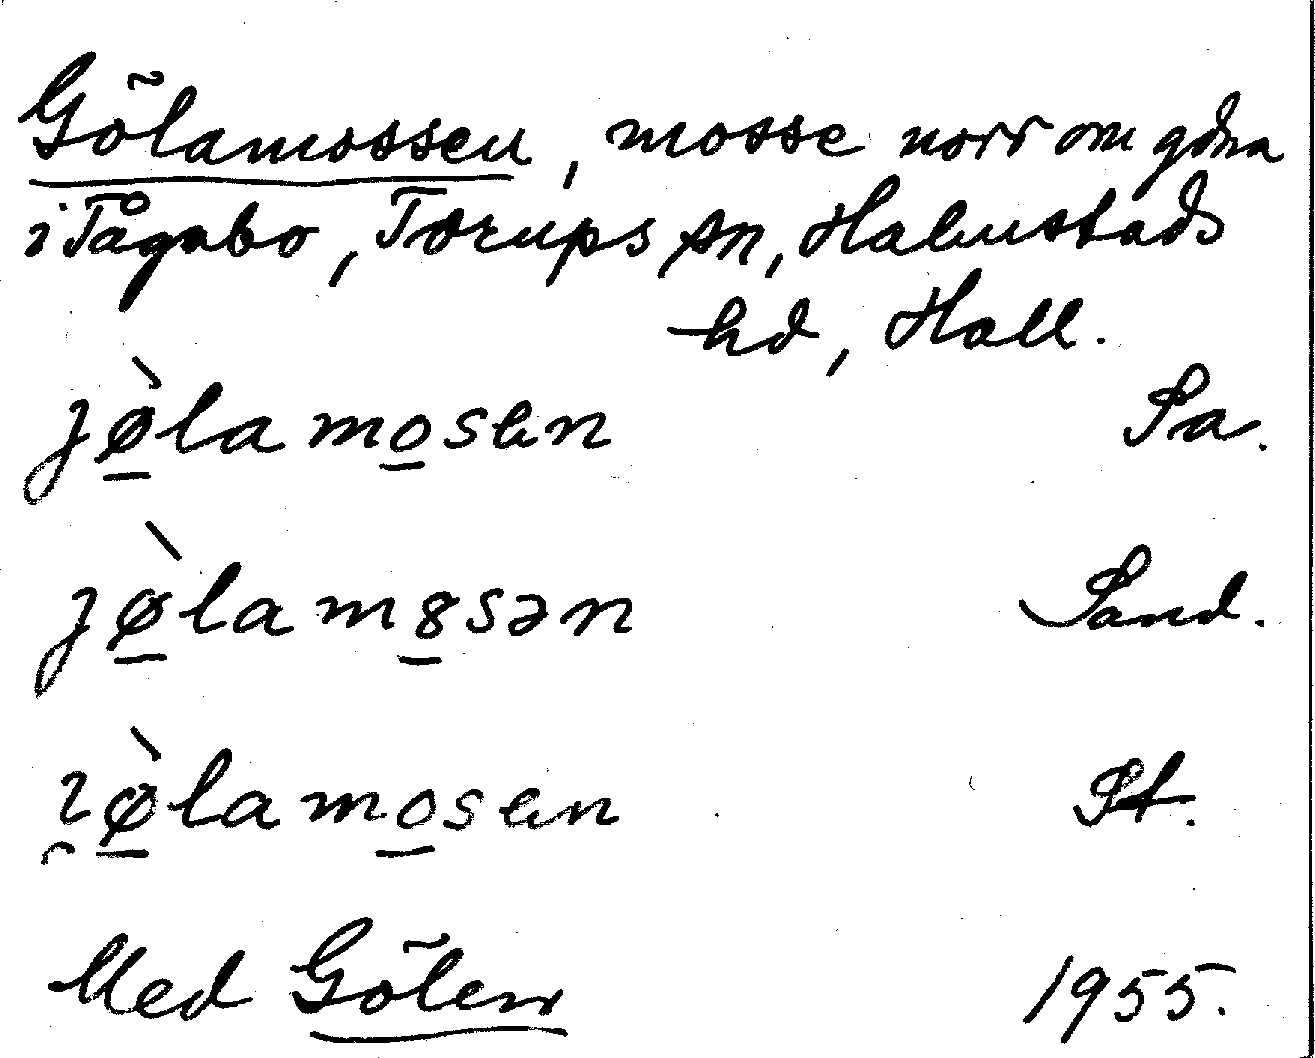 Gölamossen, mosse norr om gdna
i Tågabo, Torups sn, Halmstads
hd, Hall.
jø̀lamosen Sa.
jø̀lam8sən Sand.
ı̯ø̀lamosen St.
Med Gölen 1955.